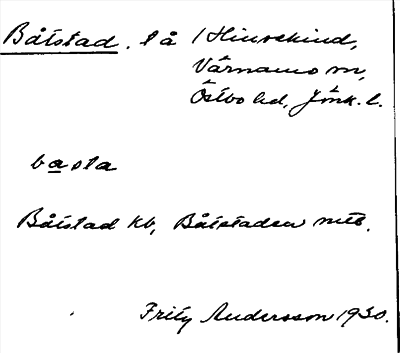 Båtstad, l å 1 Hinsekind,
Värnamo sn,
Östbo hd, Jönk. l.
basta
Båtstad kb, Båtstaden mtb.
Fritz Andersson 1930.